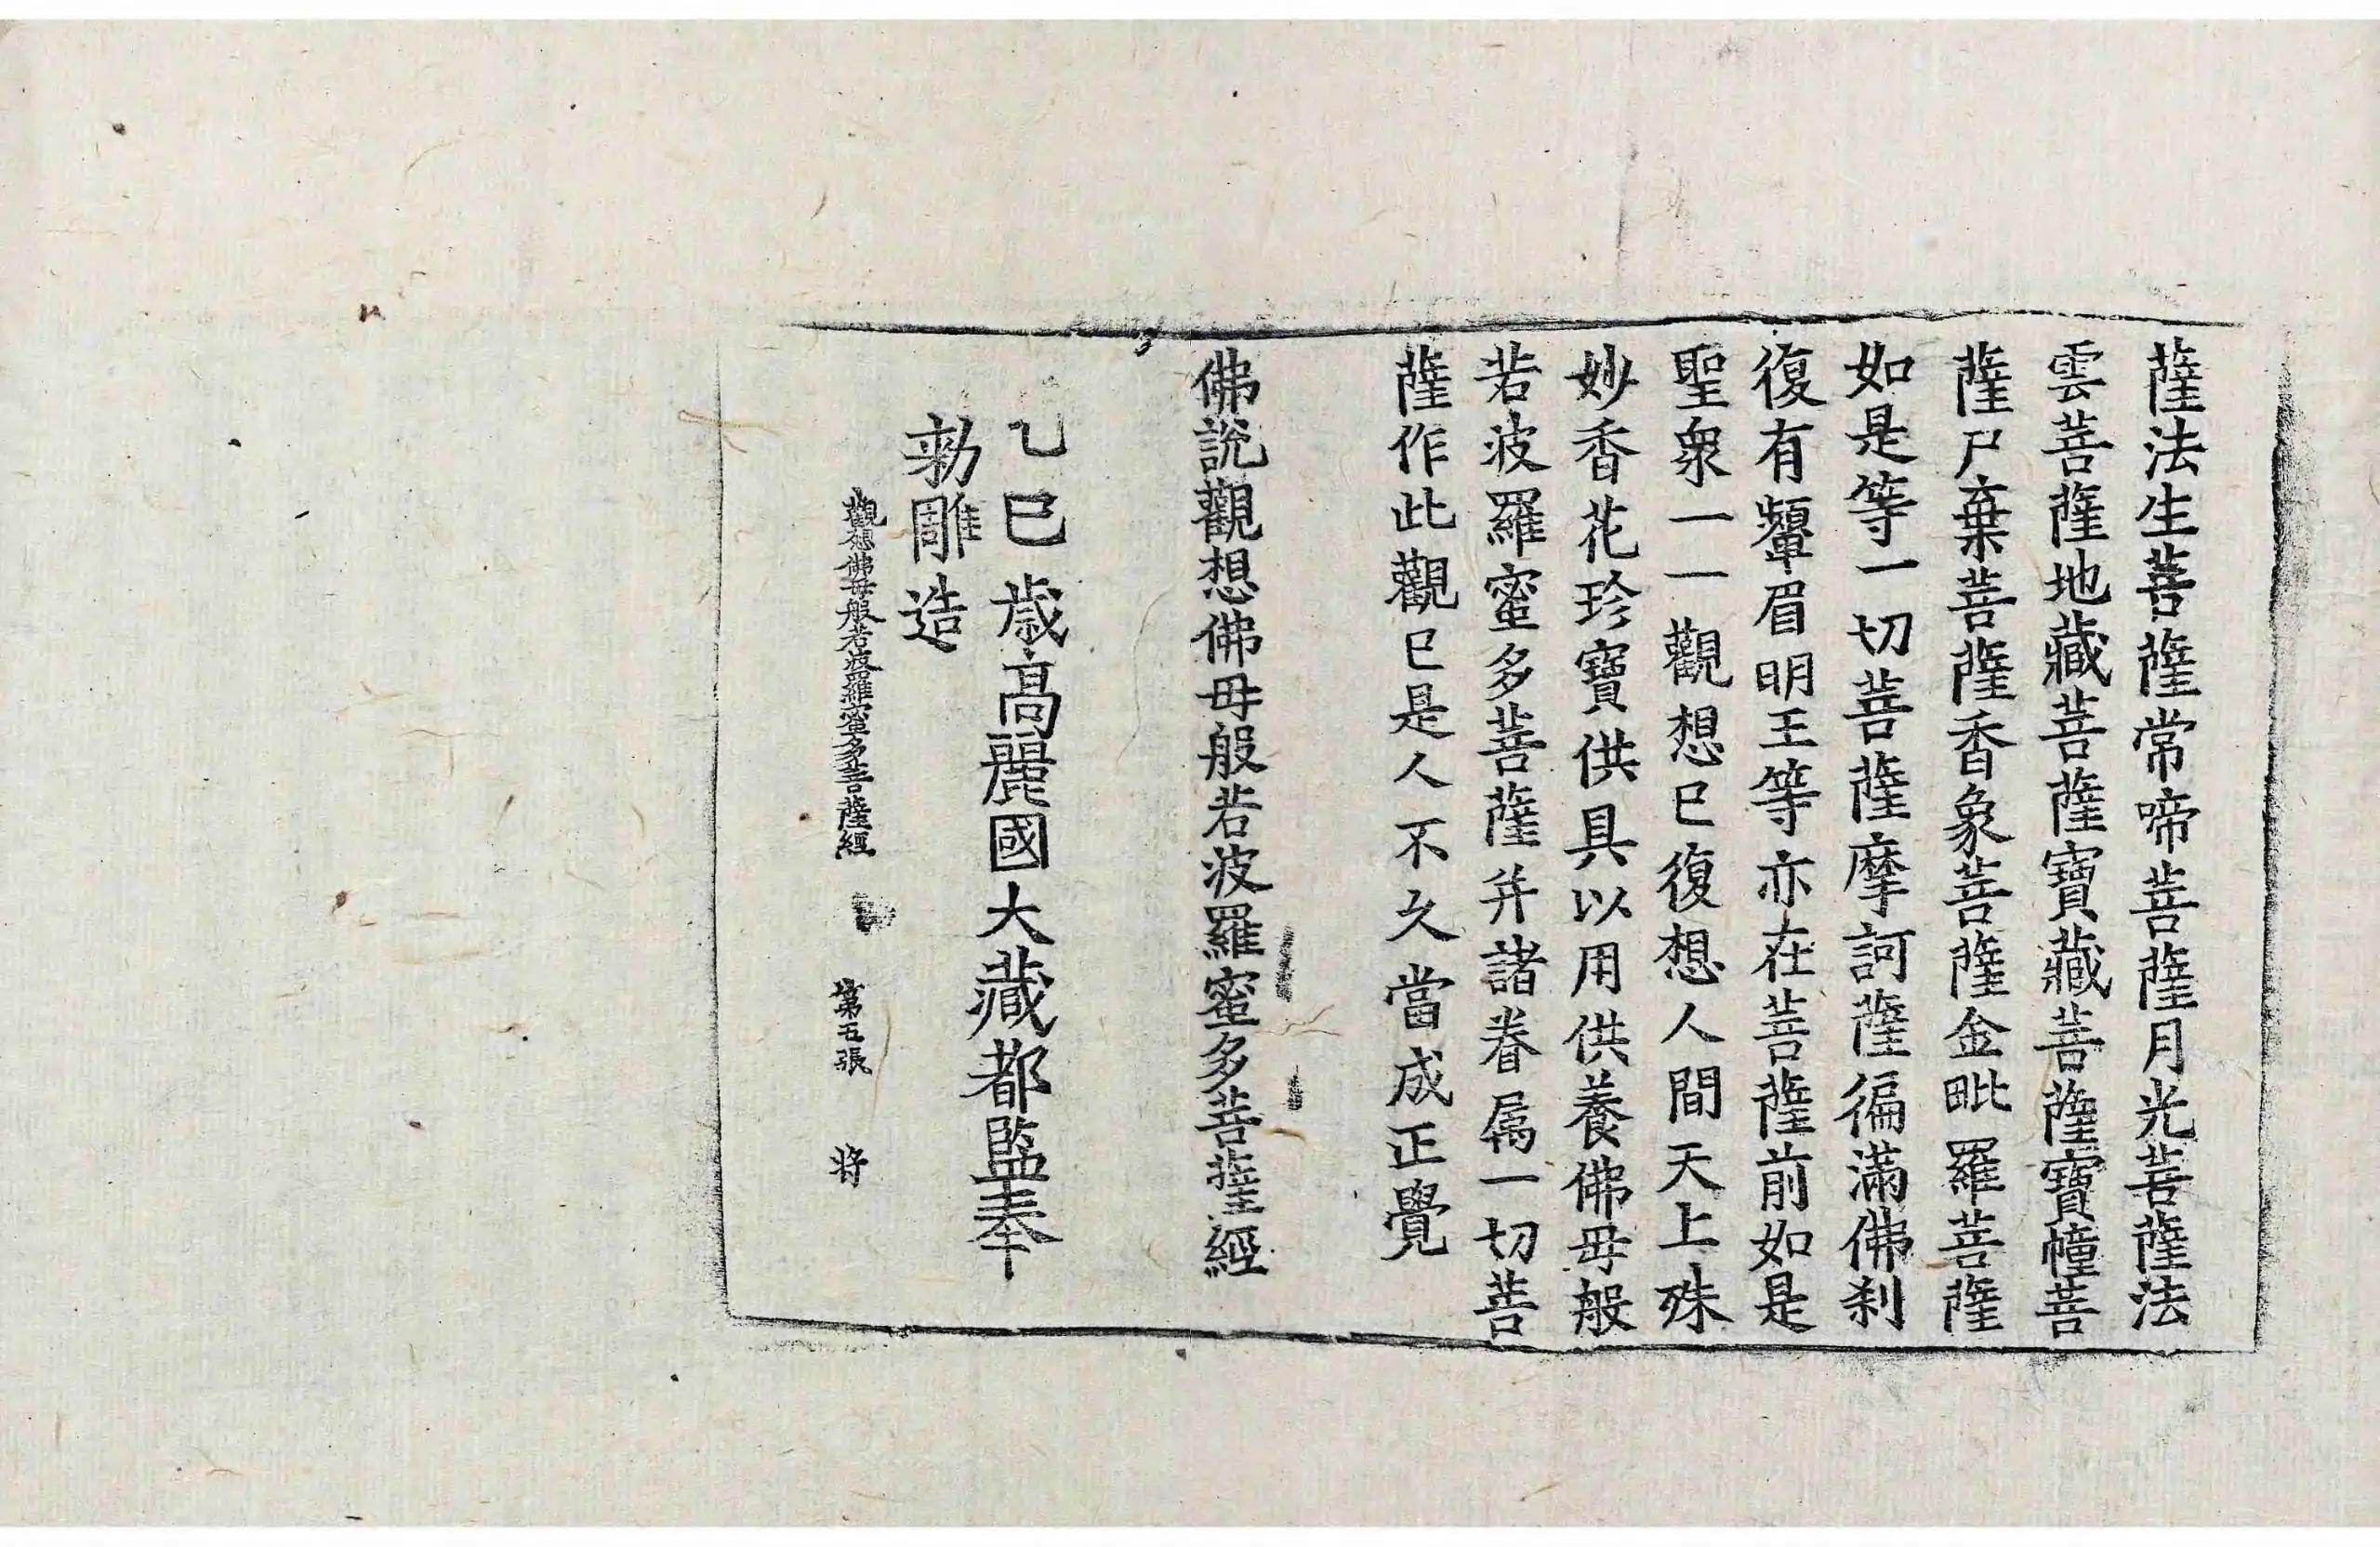 薩法生菩薩常啼菩薩月光菩薩法
雲菩薩地藏菩薩寶藏菩薩寶幢菩
薩尸棄菩薩香象菩薩金毗羅菩薩
如是等一切菩薩摩訶薩徧滿佛刹
復有顰眉明王等亦在菩薩前如是
聖衆一一觀想已復想人間天上殊
妙香花珍寶供具以用供養佛母般
若波羅蜜多菩薩并諸眷属一切菩
薩作此觀已是人不久當成正覺
佛說觀想佛母般若波羅蜜多菩薩經
乙巳歲高麗國大藏都監奉
勅雕造
觀想佛母般若波羅蜜多菩薩經 第五張 将